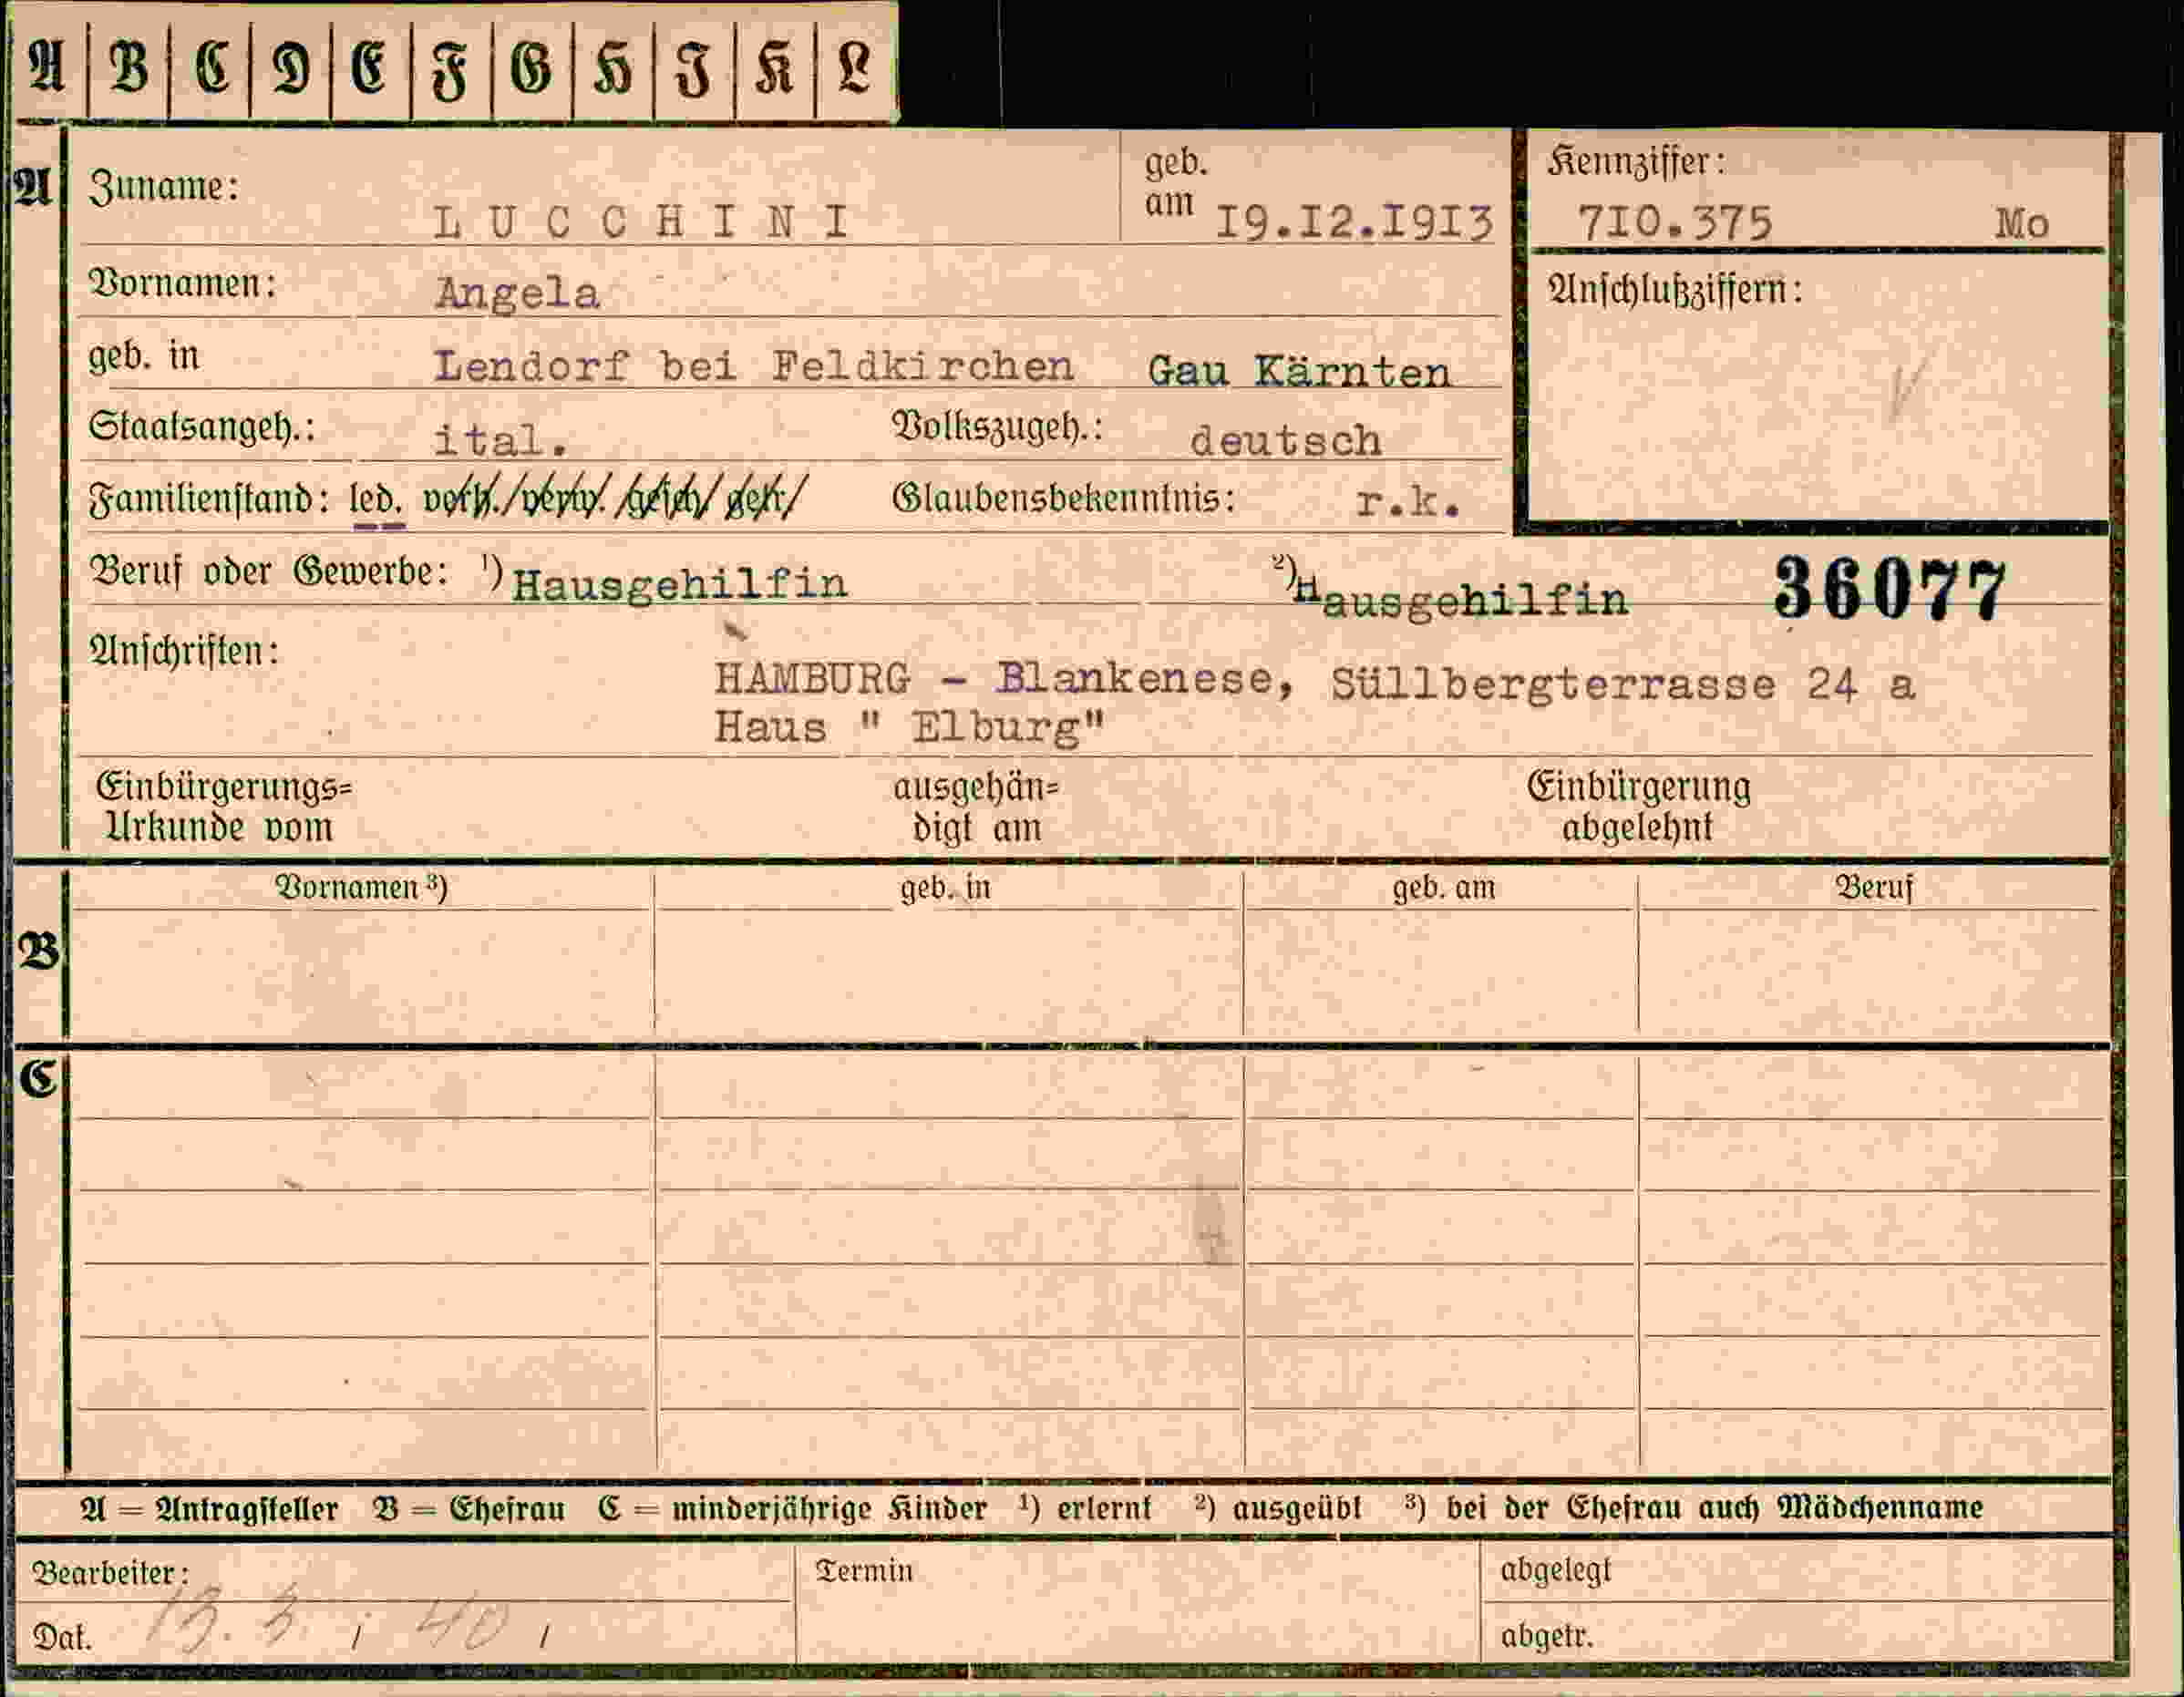 A B C D E F G H I K L
A Zuname: LUCCHINI geb. am I9.I2.I9I3 Kennziffer: 7I0.375 Mo
Vornamen: Angela Anschlußziffern:
geb. in Lendorf bei Feldkirchen Gau Kärnten
Staatsangeh.: ital. Volkszugeh.: deutsch
Familienstand: led. verh./verw./gesch/getr/ Glaubensbekenntnis: r.k.
Beruf oder Gewerbe: ¹) Hausgehilfin ²) Hausgehilfin 36077
Anschriften:
HAMBURG - Blankenese, Süllbergterrasse 24 a
Haus " Elburg"
Einbürgerungs= ausgehän= Einbürgerung
Urkunde vom digt am abgelehnt
Vornamen ³) geb. in geb. am Beruf
B
C
A = Antragsteller B = Ehefrau C = minderjährige Kinder ¹) erlernt ²) ausgeübt ³) bei der Ehefrau auch Mädchenname
Bearbeiter: Termin abgelegt
Dat. 13. 3. 40 abgetr.